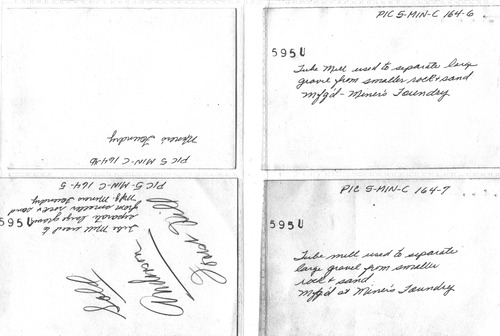 Miner's Foundry
PIC 5-MIN-C 164-6
PIC 5-MIN-C 164-6
595U
Tube Mill used to separate large
gravel from smaller rock & sand
Mfg'd - Miner's Foundry
PIC 5-MIN-C 164-5
595U
Tube Mill used to
separate large gravel
from smaller rock & sand
Mfg. Miners Foundry
Anderson
PIC 5-MIN-C 164-7
595U
Tube mill used to separate
large gravel from smaller
rock & sand
Mfg'd at Miner's Foundry